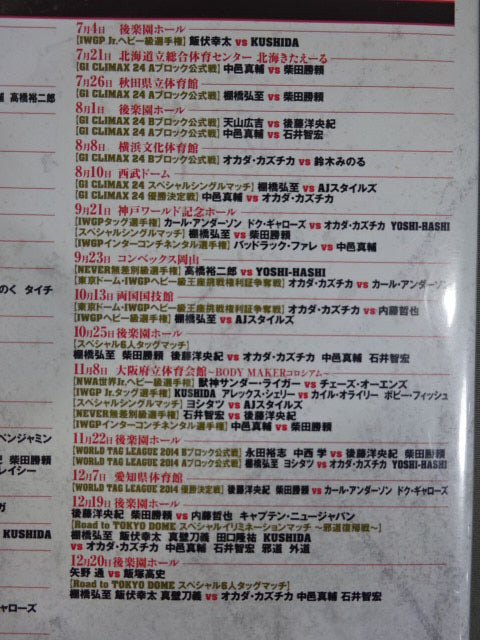 7月4日 後楽園ホール
[IWGP Jr.ヘビー級選手権] 飯伏幸太 vs KUSHIDA
7月21日 北海道立総合体育センター 北海きたえーる
[G1 CLIMAX 24 Aブロック公式戦] 中邑真輔 vs 柴田勝頼
7月26日 秋田県立体育館
[G1 CLIMAX 24 Aブロック公式戦] 棚橋弘至 vs 柴田勝頼
8月1日 後楽園ホール
[G1 CLIMAX 24 Bブロック公式戦] 天山広吉 vs 後藤洋央紀
[G1 CLIMAX 24 Aブロック公式戦] 中邑真輔 vs 石井智宏
8月8日 横浜文化体育館
[G1 CLIMAX 24 Bブロック公式戦] オカダ・カズチカ vs 鈴木みのる
8月10日 西武ドーム
[G1 CLIMAX 24 スペシャルシングルマッチ] 棚橋弘至 vs AJスタイルズ
[G1 CLIMAX 24 優勝決定戦] 中邑真輔 vs オカダ・カズチカ
9月21日 神戸ワールド記念ホール
[IWGPタッグ選手権] カール・アンダーソン ドク・ギャローズ vs オカダ・カズチカ YOSHI-HASHI
[スペシャルシングルマッチ] 棚橋弘至 vs 柴田勝頼
[IWGPインターコンチネンタル選手権] バッドラック・ファレ vs 中邑真輔
9月23日 コンベックス岡山
[NEVER無差別級選手権] 高橋裕二郎 vs YOSHI-HASHI
[東京ドーム・IWGPヘビー級王座挑戦権利証争奪戦] オカダ・カズチカ vs カール・アンダーソン
10月13日 両国国技館
[東京ドーム・IWGPヘビー級王座挑戦権利証争奪戦] オカダ・カズチカ vs 内藤哲也
[IWGPヘビー級選手権] 棚橋弘至 vs AJスタイルズ
10月25日 後楽園ホール
[スペシャル6人タッグマッチ]
棚橋弘至 柴田勝頼 後藤洋央紀 vs オカダ・カズチカ 中邑真輔 石井智宏
11月8日 大阪府立体育会館 ~BODY MAKERコロシアム~
[NWA世界Jr.ヘビー級選手権] 獣神サンダー・ライガー vs チェーズ・オーエンズ
[IWGP Jr.タッグ選手権] KUSHIDA アレックス・シェリー vs カイル・オライリー ボビー・フィッシュ
[スペシャルマッチ] ヨシタツ vs AJスタイルズ
[NEVER無差別級選手権] 石井智宏 vs 後藤洋央紀
[IWGPインターコンチネンタル選手権] 中邑真輔 vs 柴田勝頼
11月22日 後楽園ホール
[WORLD TAG LEAGUE 2014 Bブロック公式戦] 永田裕志 中西 学 vs 後藤洋央紀 柴田勝頼
[WORLD TAG LEAGUE 2014 Aブロック公式戦] 棚橋弘至 ヨシタツ vs オカダ・カズチカ YOSHI-HASHI
12月7日 愛知県体育館
[WORLD TAG LEAGUE 2014 優勝決定戦] 後藤洋央紀 柴田勝頼 vs カール・アンダーソン ドク・ギャローズ
12月19日 後楽園ホール
後藤洋央紀 柴田勝頼 vs 内藤哲也 キャプテン・ニュージャパン
[Road to TOKYO DOME スペシャルイリミネーションマッチ ~邪道復帰戦~]
棚橋弘至 飯伏幸太 真壁刀義 田口隆祐 KUSHIDA
vs オカダ・カズチカ 中邑真輔 石井智宏 邪道 外道
12月20日 後楽園ホール
矢野 通 vs 飯塚高史
[Road to TOKYO DOME スペシャル6人タッグマッチ]
棚橋弘至 飯伏幸太 真壁刀義 vs オカダ・カズチカ 中邑真輔 石井智宏
高橋裕二郎
のく タイチ
ベンジャミン
柴田勝頼
レイシー
ガ
KUSHIDA
ャローズ